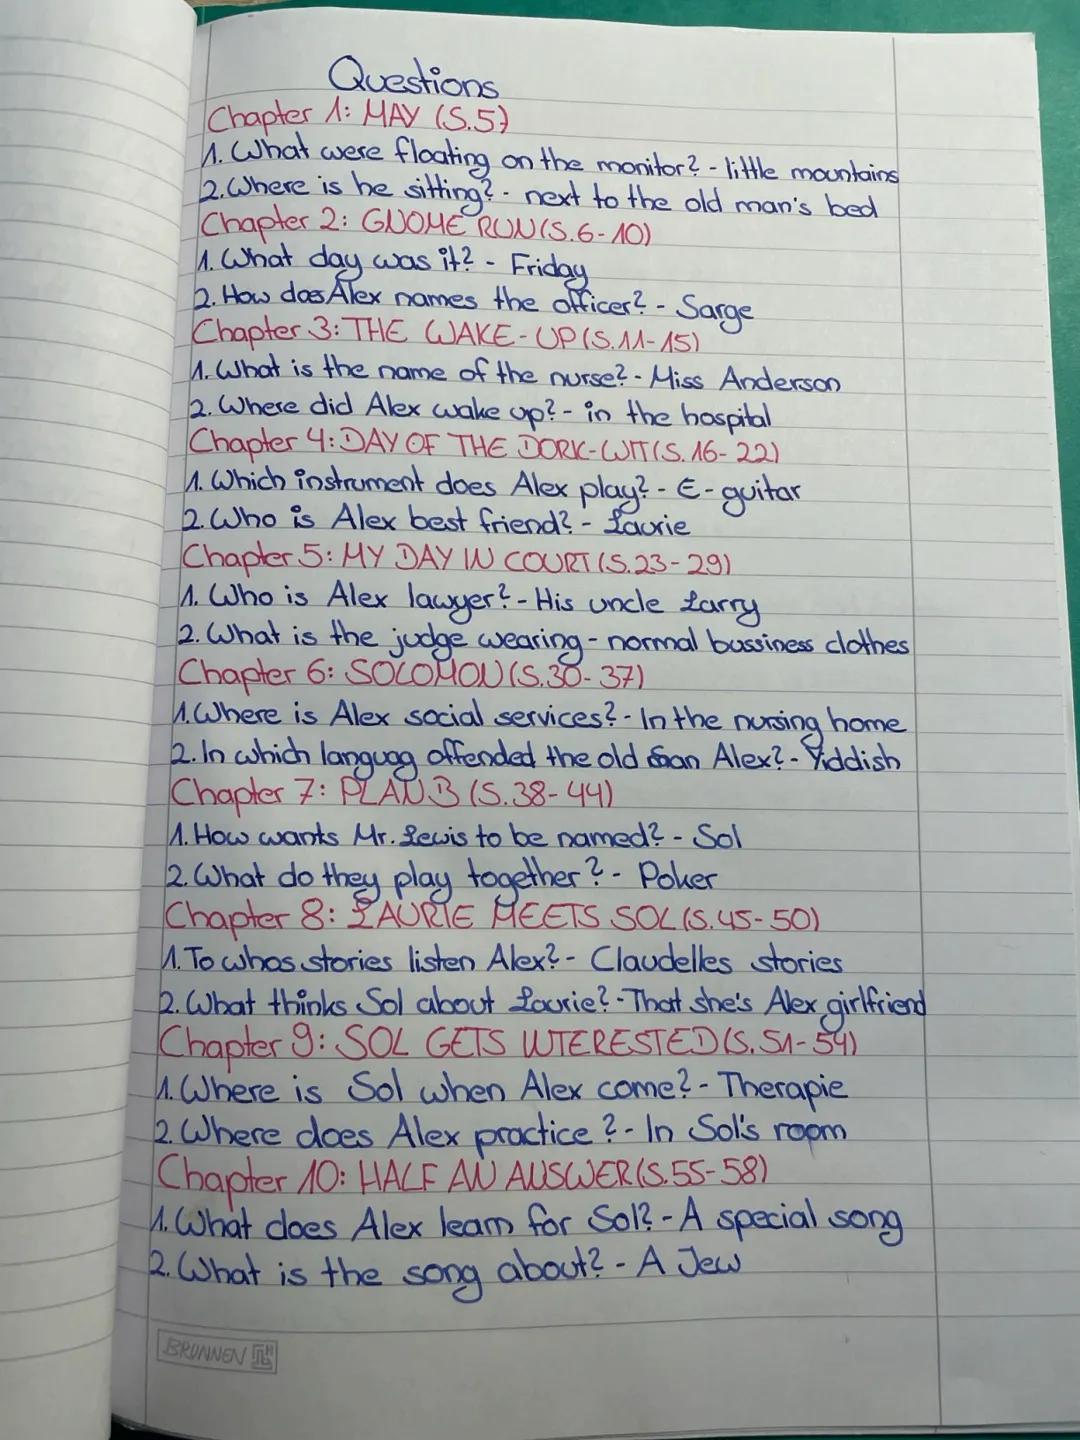 Questions
Chapter 1: MAY (S.5)
1. What were floating on the monitor? - little mountains
2. Where is he sitting? - next to the old man's bed
Chapter 2: GNOME RUN (S.6-10)
1. What day was it? - Friday
2. How does Alex names the officer? - Sarge
Chapter 3: THE WAKE-UP (S.11-15)
1. What is the name of the nurse? - Miss Anderson
2. Where did Alex wake up? - in the hospital
Chapter 4: DAY OF THE DORK-WIT (S.16-22)
1. Which instrument does Alex play? - E-guitar
2. Who is Alex best friend? - Laurie
Chapter 5: MY DAY IN COURT (S.23-29)
1. Who is Alex lawyer? - His uncle Larry
2. What is the judge wearing - normal bussiness clothes
Chapter 6: SOLOMON (S.30-37)
1. Where is Alex social services? - In the nursing home
2. In which languag offended the old man Alex? - Yiddish
Chapter 7: PLAN B (S.38-44)
1. How wants Mr. Lewis to be named? - Sol
2. What do they play together? - Poker
Chapter 8: LAURIE MEETS SOL (S.45-50)
1. To whos stories listen Alex? - Claudelles stories
2. What thinks Sol about Laurie? - That she's Alex girlfriend
Chapter 9: SOL GETS INTERESTED (S.51-54)
1. Where is Sol when Alex come? - Therapie
2. Where does Alex practice? - In Sol's room
Chapter 10: HALF AN ANSWER (S.55-58)
1. What does Alex learn for Sol? - A special song
2. What is the song about? - A Jew
BRUNNEN